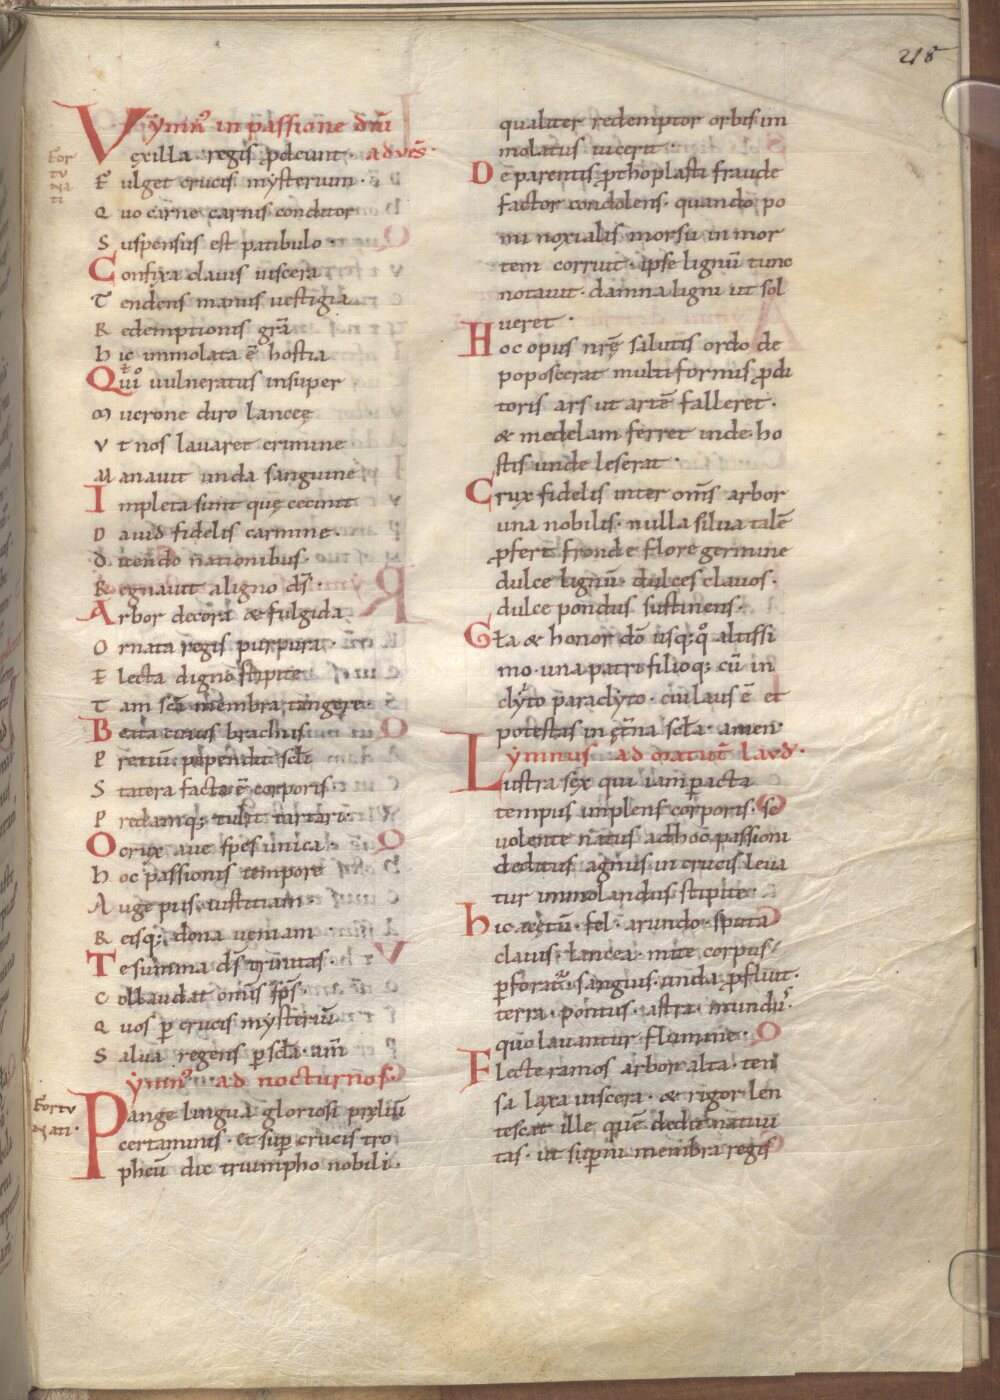 218
Ymnꝰ in passione dñi
Vexilla regis ꝓdeunt· ad ves̃·
For
tu
na
ti
Fulget crucis mysterium·
Quo carne carnis conditor
Suspensus est patibulo·
Confixa clavis viscera
Tendens manus vestigia
Redemptionis gr̃a
hic immolata ē hostia
Qui vulneratus insuper
mucrone diro lanceę
Vt nos lavaret crimine
Manavit unda sanguine
Impleta sunt quę cecinit
David fidelis carmine
dicendo nationibus·
Regnavit aligno ds̃·
Arbor decora & fulgida
Ornata regis purpura·
Electa digno stipite
Tam sc̃a membra tangere·
Beata cuius brachiis
Pretiũ pependit scl̃i
Statera facta ē corporis·
Predamq; tulit tartari·
O crux ave spes unica·
hoc passionis tempore
Auge piis iustitiam·
Reisq; dona veniam
Te summa ds̃ trinitas·
Collaudat omĩs sp̃s·
Quos ꝑ crucis mysteriũ
Salva regens ꝑ scl̃a· am̃
ymnꝰ ad nocturnos·
Fortu
nati·
Pange lingua gloriosi preliũ
certaminis· et suꝑ crucis tro
pheũ dic triumpho nobili·
qualiter redemptor orbis im
molatus vicerit·
De parentis ꝓthoplasti fraude
factor condolens· quando po
mi noxialis morsu in mor
tem corruit· ipse lignũ tunc
notavit· damna ligni ut sol
veret·
Hoc opus nrę̃ salutis ordo de
poposcerat multiformis ꝓdi
toris ars ut artē falleret·
& medelam ferret inde· ho
stis unde leserat·
Crux fidelis inter om̃s arbor
una nobilis· nulla silva talē
ꝓfert fronde flore germine
dulce lignũ dulces clavos·
dulce pondus sustinens·
Gl̃a & honor dō usq;q̊ altissi
mo· una patri filioq; cũ in
clyto paraclyto· cui laus ē et
potestas in et̃na scl̃a· amen·
ymnus ad matut̃ laud·
Lustra sex qui iam ꝑacta
tempus implens corporis· se
volente natus ad hoc passioni
deditus agnus in crucis leva
tur immolandus stipite·
hic acetũ· fel· arundo· sputa
clavi· lancea· mite corpus
ꝑforat̃· sanguis· unda ꝓfluit·
terra· pontus· astra· mundꝰ·
quo lavantur flumine·
Flecte ramos arbor alta· ten
sa laxa viscera· & rigor len
tescat ille quē dedit nativi
tas· ut suꝑni membra regis